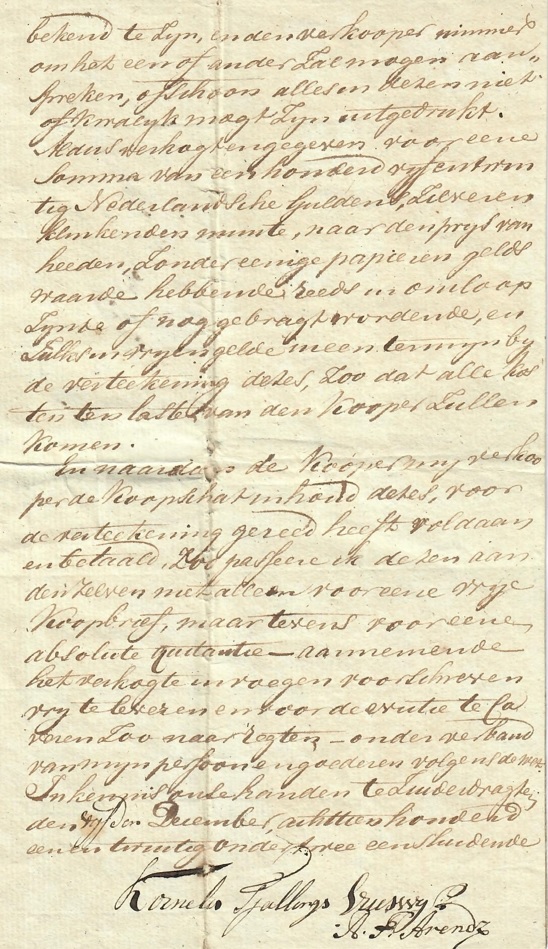 bekend te zyn, en den verkooper nimmer
om het een of ander zal mogen aan„
spreken, ofschoon alles in dezen niet
of kwalyk mogt zyn uitgedrukt.
Aldus verkogt en gegeven voor eene
somma van een honderd vyf en twin
tig Nederlandsche Guldens, zilveren
klinkenden munte, naar den prys van
heeden, zonder eenige papieren gelds
waarde hebbende reeds in omloop
zynde of nog gebragt wordende, en
zulks in vryen gelde in een termyn by
de verteekening dezes, zoo dat alle kos
ten ten laste van den Kooper zullen
komen.
En naardien de Kooper my verkoo
per de Koopschat inhoud dezes, voor
de verteekening gereed heeft voldaan
en betaald, zoo passeere ik dezen aan
denzelven niet alleen voor eene vrye
Koopbrief, maar tevens voor eene
absolute quitantie – aannemende
het verkogte in voegen voorschreven
vry te leveren en voor de evictie te Ca
veren zoo naar regten, – onder verband
van myn persoon en goederen volgens de wet.
In kennis onze handen te Zuiderdragten
den December, achttienhonderd
een en twintig onder twee eensluidende
Kornelis Tjallings
A. F. Arends